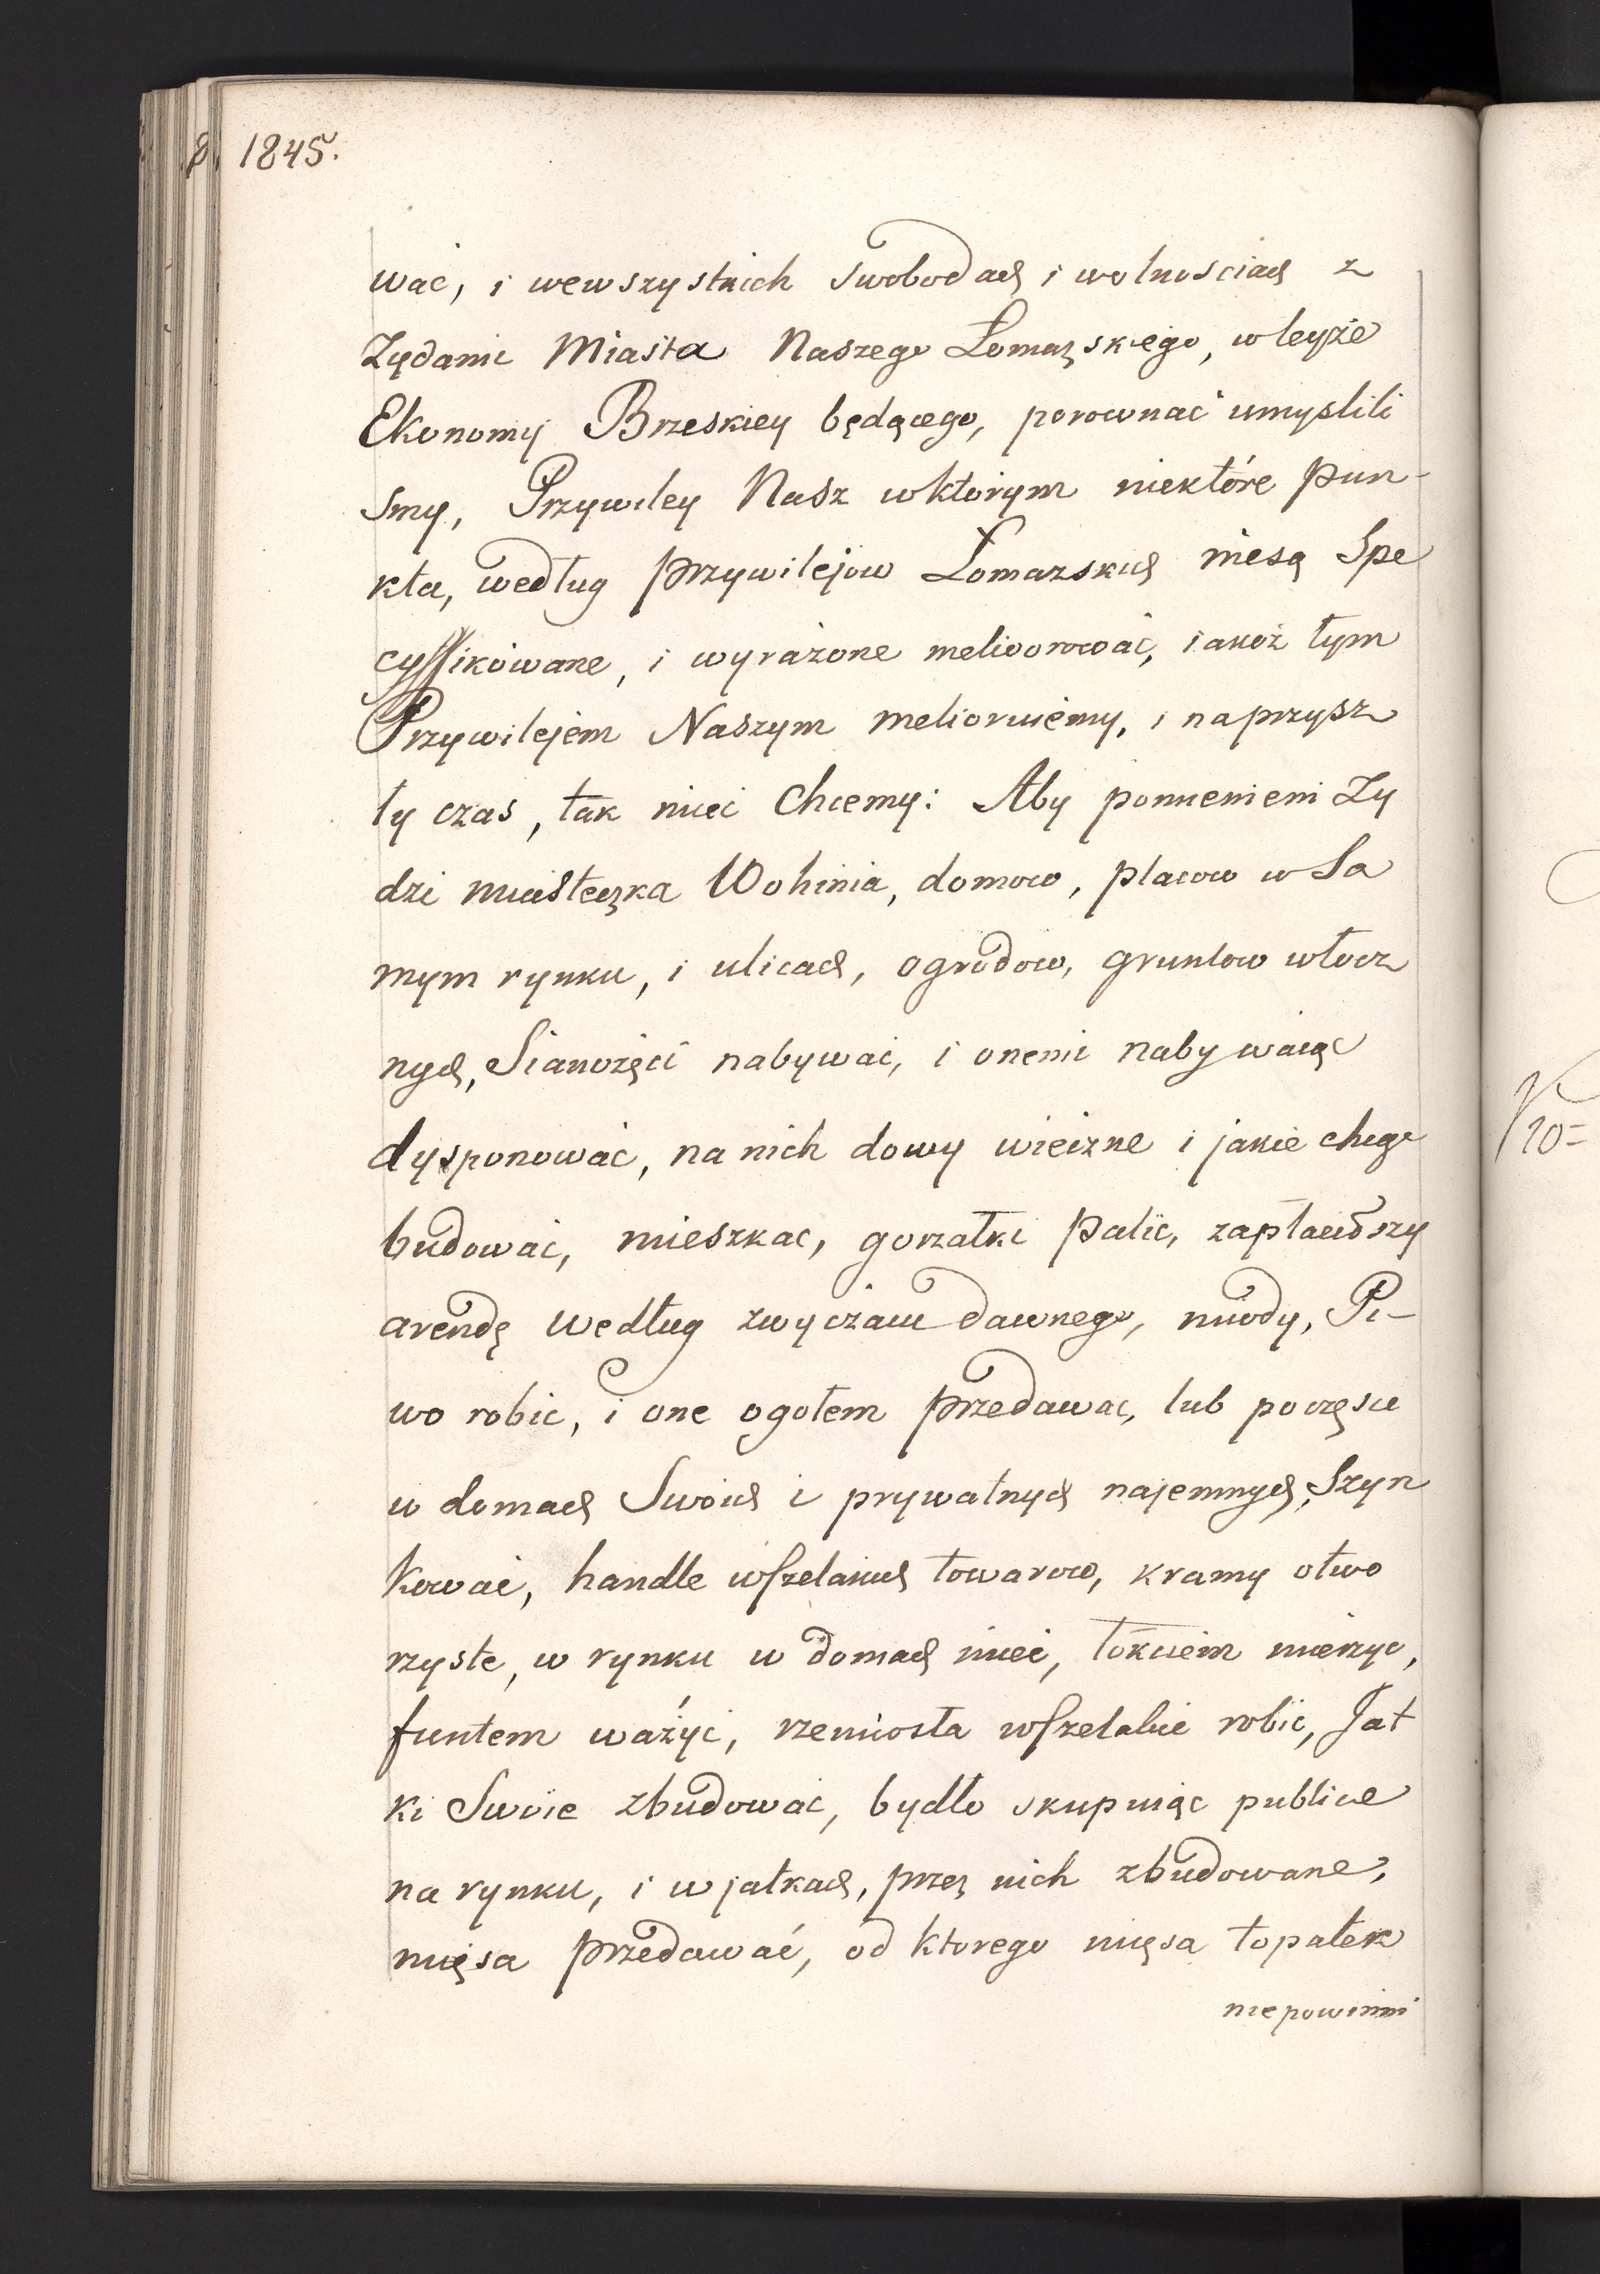 1845.
wac, i wewszystkich swobodach i wolnosciach z
Zydami Miasta Naszego Łomazskiego, wteyże
Ekonomij Brzeskiey będącego, porownać umyslili
smy, Przywiley Nasz wktórym niektóre pun-
kta, według przywilejow Łomazskich niesą Spe
cyffikowane, i wyrażone melioorować, iakoż tym
Przywilejem Naszym melioruiemy, i naprzysz
ły czas, tak mieć Chcemy: Aby pomienieni Zy
dzi miasteczka Wohinia, domow, placow w Sa
mym rynku, i ulicach, ogrodow, gruntow włocz
nych, Sianożęci nabywać, i onemi nabywaiąc
dysponować, na nich domy wieizne i jakie chcąc
budowai, mieszkac, gorzałki palic, zapłaciwszy
arendę według zwyczaiu dawnego, miody, Pi-
wo robic, i one ogołem przedawac, lub poczęsci
w domach Swoich i prywatnych najemnych, Szyn
kować, handle wszelakich towarow, kramy otwo
rzyste, w rynku w domach mieć, łokciem mierzyc,
funtem ważyć, rzemiosła wszelakie robic, Jat
ki Swoie zbudować, bydło skupuiąc publice
na rynku, i w jatkach, przez nich zbudowane,
mięsa przedować, od ktorego mięsa łopatek
niepowinni
10=